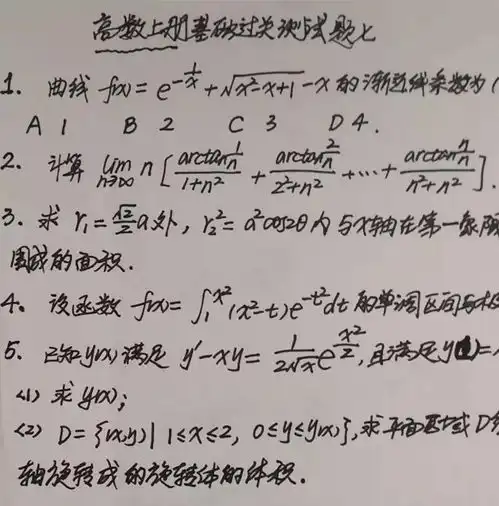 高数上册基础过关测试题七
1. 曲线 f(x) = e^{-\frac{1}{x}} + \sqrt{x^2-x+1} - x 的渐近线条数为 (
A 1 B 2 C 3 D 4.
2. 计算 \lim_{n→∞} n [ \frac{arctan\frac{1}{n}}{1+n^2} + \frac{arctan\frac{2}{n}}{2^2+n^2} + ⋯ + \frac{arctan\frac{n}{n}}{n^2+n^2} ].
3. 求 r_1 = \frac{\sqrt{2}}{2}a 外, r_2^2 = a^2cos2θ 内 与x轴在第一象限
围成的面积.
4. 设函数 f(x) = ∫_1^{x^2} (x^2-t)e^{-t^2}dt 的单调区间与极
5. 已知y(x)满足 y'-xy = \frac{1}{2\sqrt{x}}e^{\frac{x^2}{2}}, 且满足y(1)=
<1> 求 y(x);
<2> D = {(x,y) | 1≤x≤2, 0≤y≤y(x)}, 求平面区域D
轴旋转成的旋转体的体积.